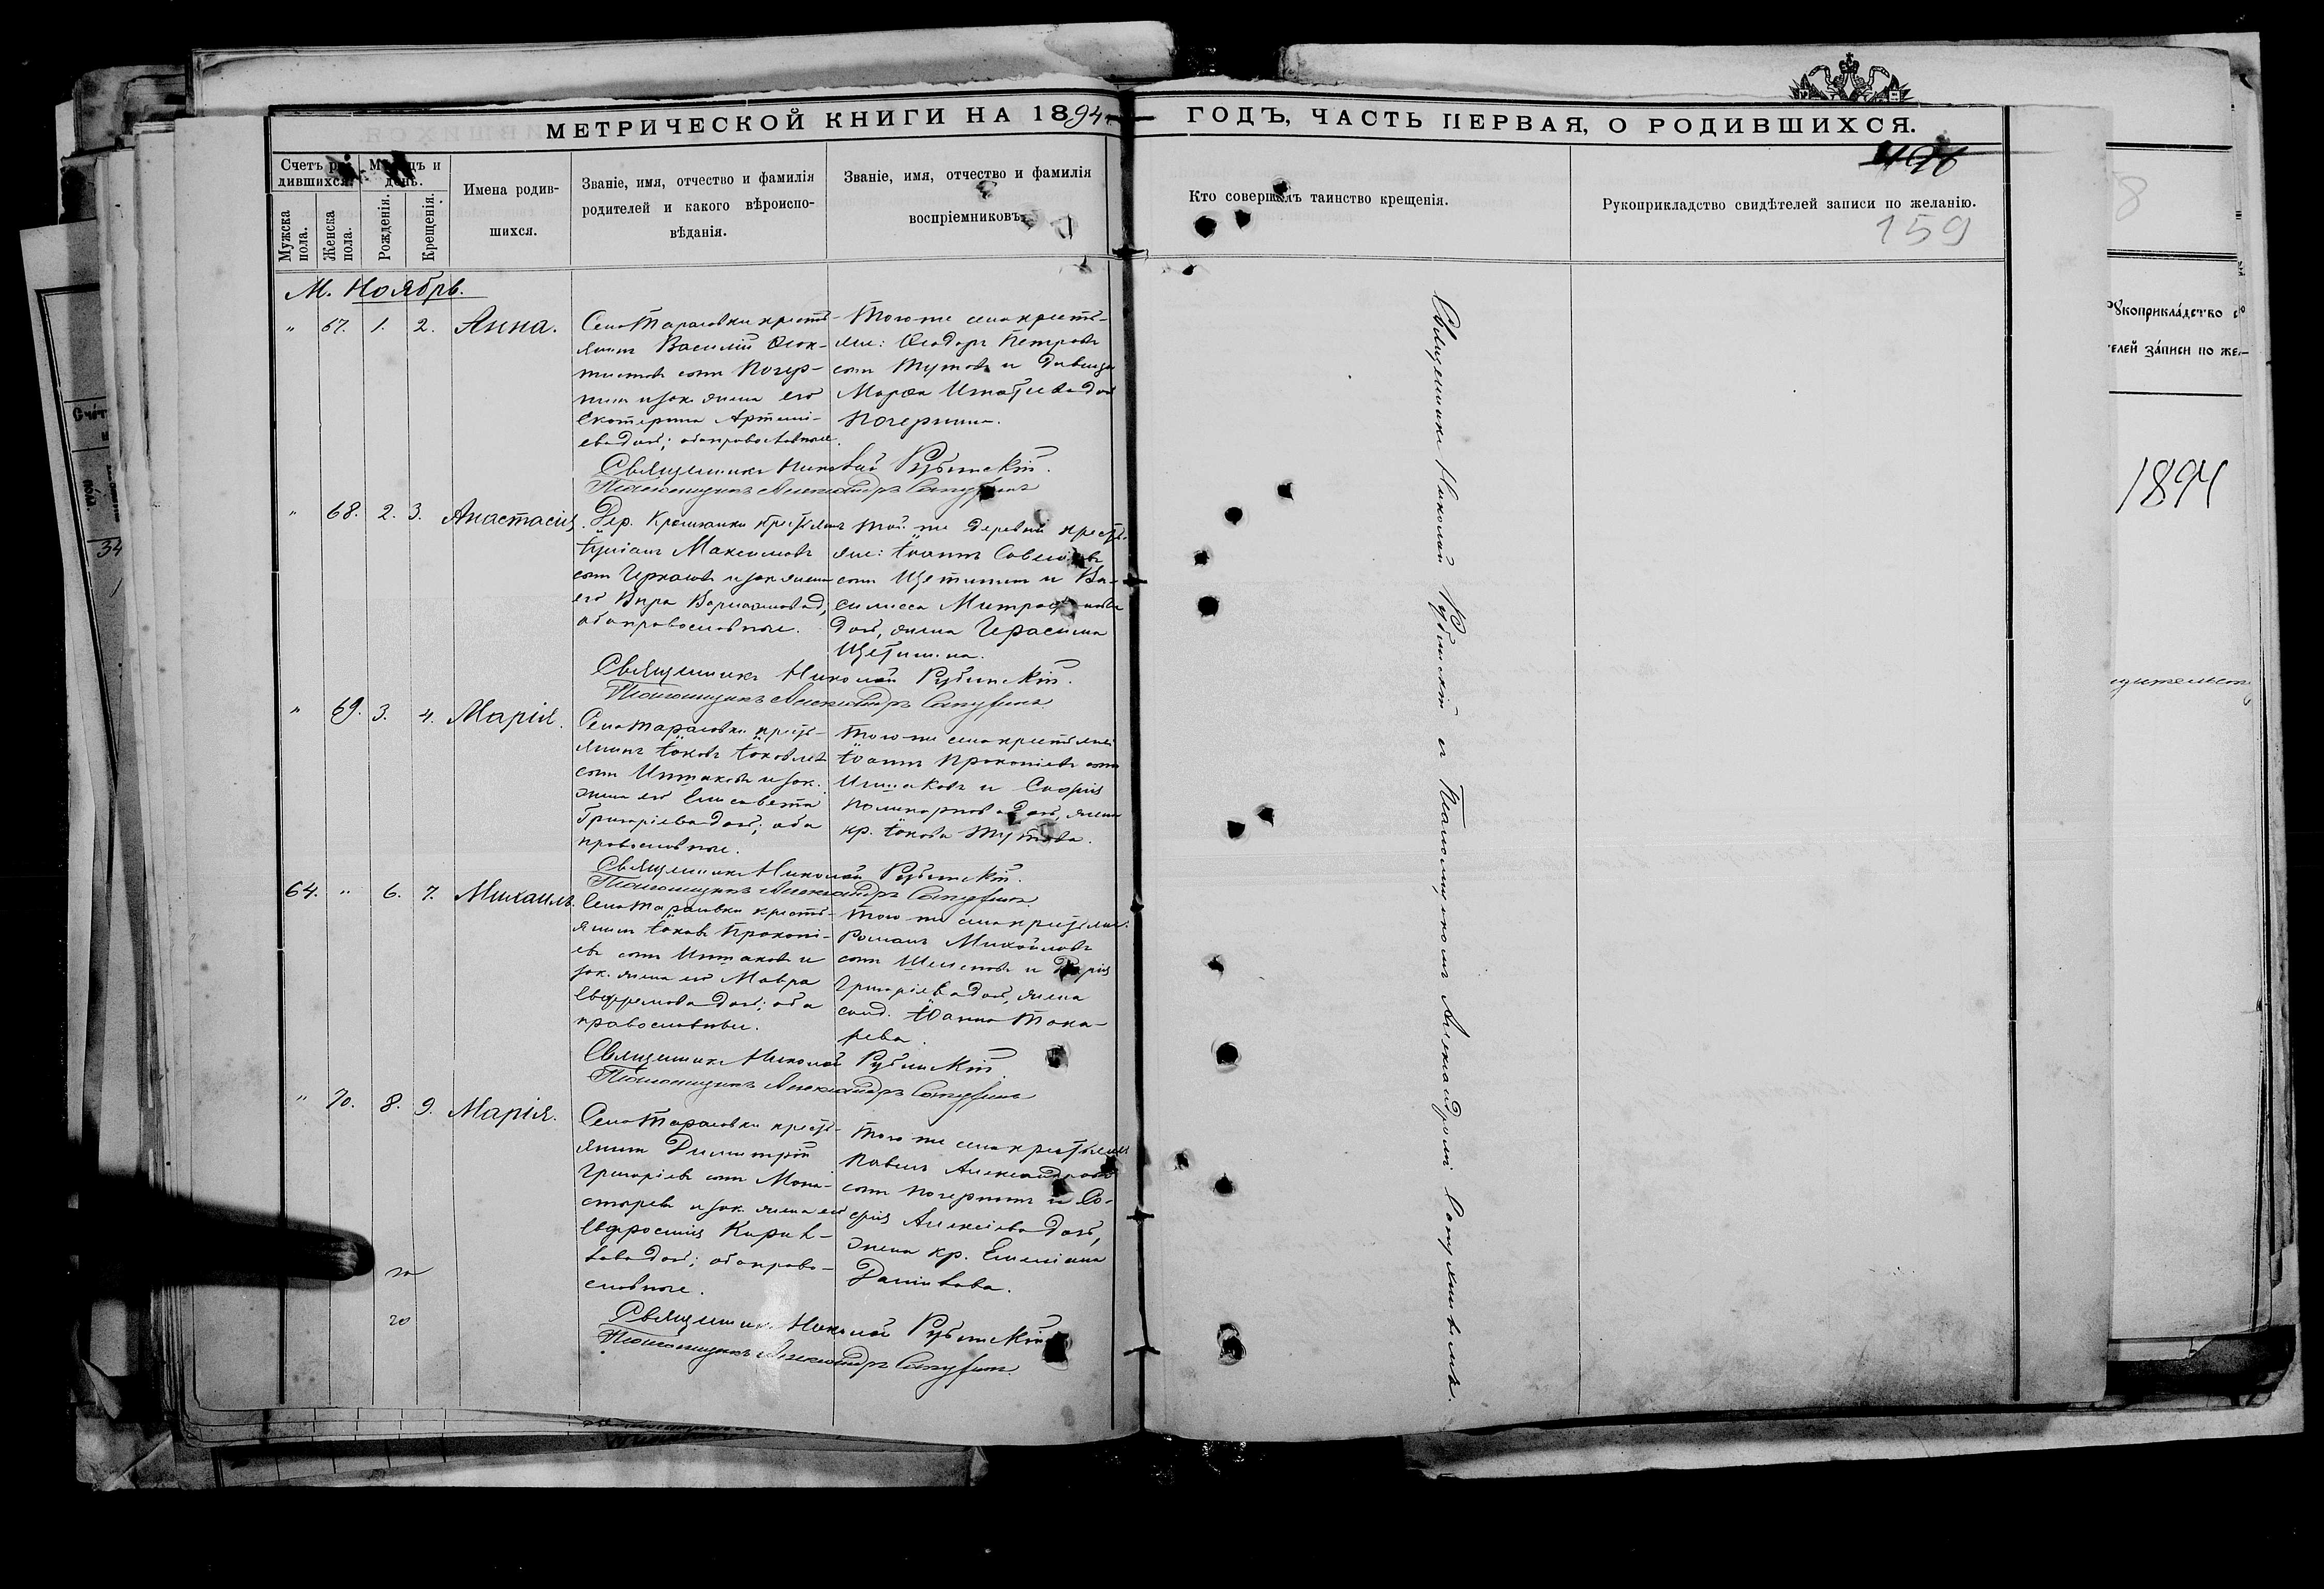 МЕТРИЧЕСКОЙ КНИГИ НА 1894
ГОДЪ, ЧАСТЬ ПЕРВАЯ, О РОДИВШИХСЯ.
Счетъ ро-
дившихся.
Мужска
пола.
Женска
пола.
Мѣсяцъ и
день.
Рожденія.
Крещенія.
Имена родив-
шихся.
Званіе, имя, отчество и фамилія
родителей и какого вѣроиспо-
вѣданія.
Званіе, имя, отчество и фамилія
воспріемниковъ.
Кто совершалъ таинство крещенія.
Рукоприкладство свидѣтелей записи по желанію.
159
М. Ноябрь.
" 67. 1. 2. Анна.
Села Тарасовки кресть-
янинъ Василій
сынъ Почер-
нинъ и зак. жена его
Екатерина Артемі-
ева дочь; оба православные.
Того же села кресть-
яне: Ѳеодоръ Петровъ
сынъ Тутовъ и дѣвица
Марѳа Игнатіева дочь
Почернина.
Священникъ Николай Рубинскій.
Псаломщикъ Александръ
" 68. 2. 3. Анастасія.
Дер. крестьянинъ
Іуліанъ Максимовъ
сынъ Черкасовъ и зак. жена
его Вѣра
оба православные.
Той же деревни кресть-
яне: Іоаннъ Савельевъ
сынъ Щетининъ и Ва-
силисса Митрофанова
дочь, жена Герасима
Щетинина.
Священникъ Николай Рубинскій.
Псаломщикъ Александръ
" 69. 3. 4. Марія.
Села Тарасовки кресть-
янинъ Іаковъ Іаковлевъ
сынъ Ишаковъ и зак.
жена его Елисавета
Григоріева дочь; оба
православные.
Того же села крестьяне
Іоаннъ Прокопіевъ сынъ
Ишаковъ и Софія
Поликарпова дочь, жена
кр. Іакова Тутова.
Священникъ Николай Рубинскій.
Псаломщикъ Александръ
64. " 6. 7. Михаилъ.
Села Тарасовки кресть-
янинъ Іаковъ Прокопі-
евъ сынъ Ишаковъ и
зак. жена его Мавра
Евфремова дочь; оба
православные.
Того же села крестьяне:
Романъ Михайловъ
сынъ и Дарія
Григоріева дочь, жена
солд. Іоанна Тока-
рева.
Священникъ Николай Рубинскій.
Псаломщикъ Александръ
" 70. 8. 9. Марія.
Села Тарасовки кресть-
янинъ Димитрій
Григоріевъ сынъ Мона-
стыревъ и зак. жена его
Евфросинія Кирил-
лова дочь; оба право-
славные.
Того же села крестьяне
Павелъ Александровъ
сынъ Почернинъ и Со-
фія Алексіева дочь,
жена кр. Емеліана
Данилова.
Священникъ Николай Рубинскій
Псаломщикъ Александръ
Священникъ Николай Рубинскій съ Псаломщикомъ Александромъ
Рукоприкла́дство с
елей за́писи по же-
1894